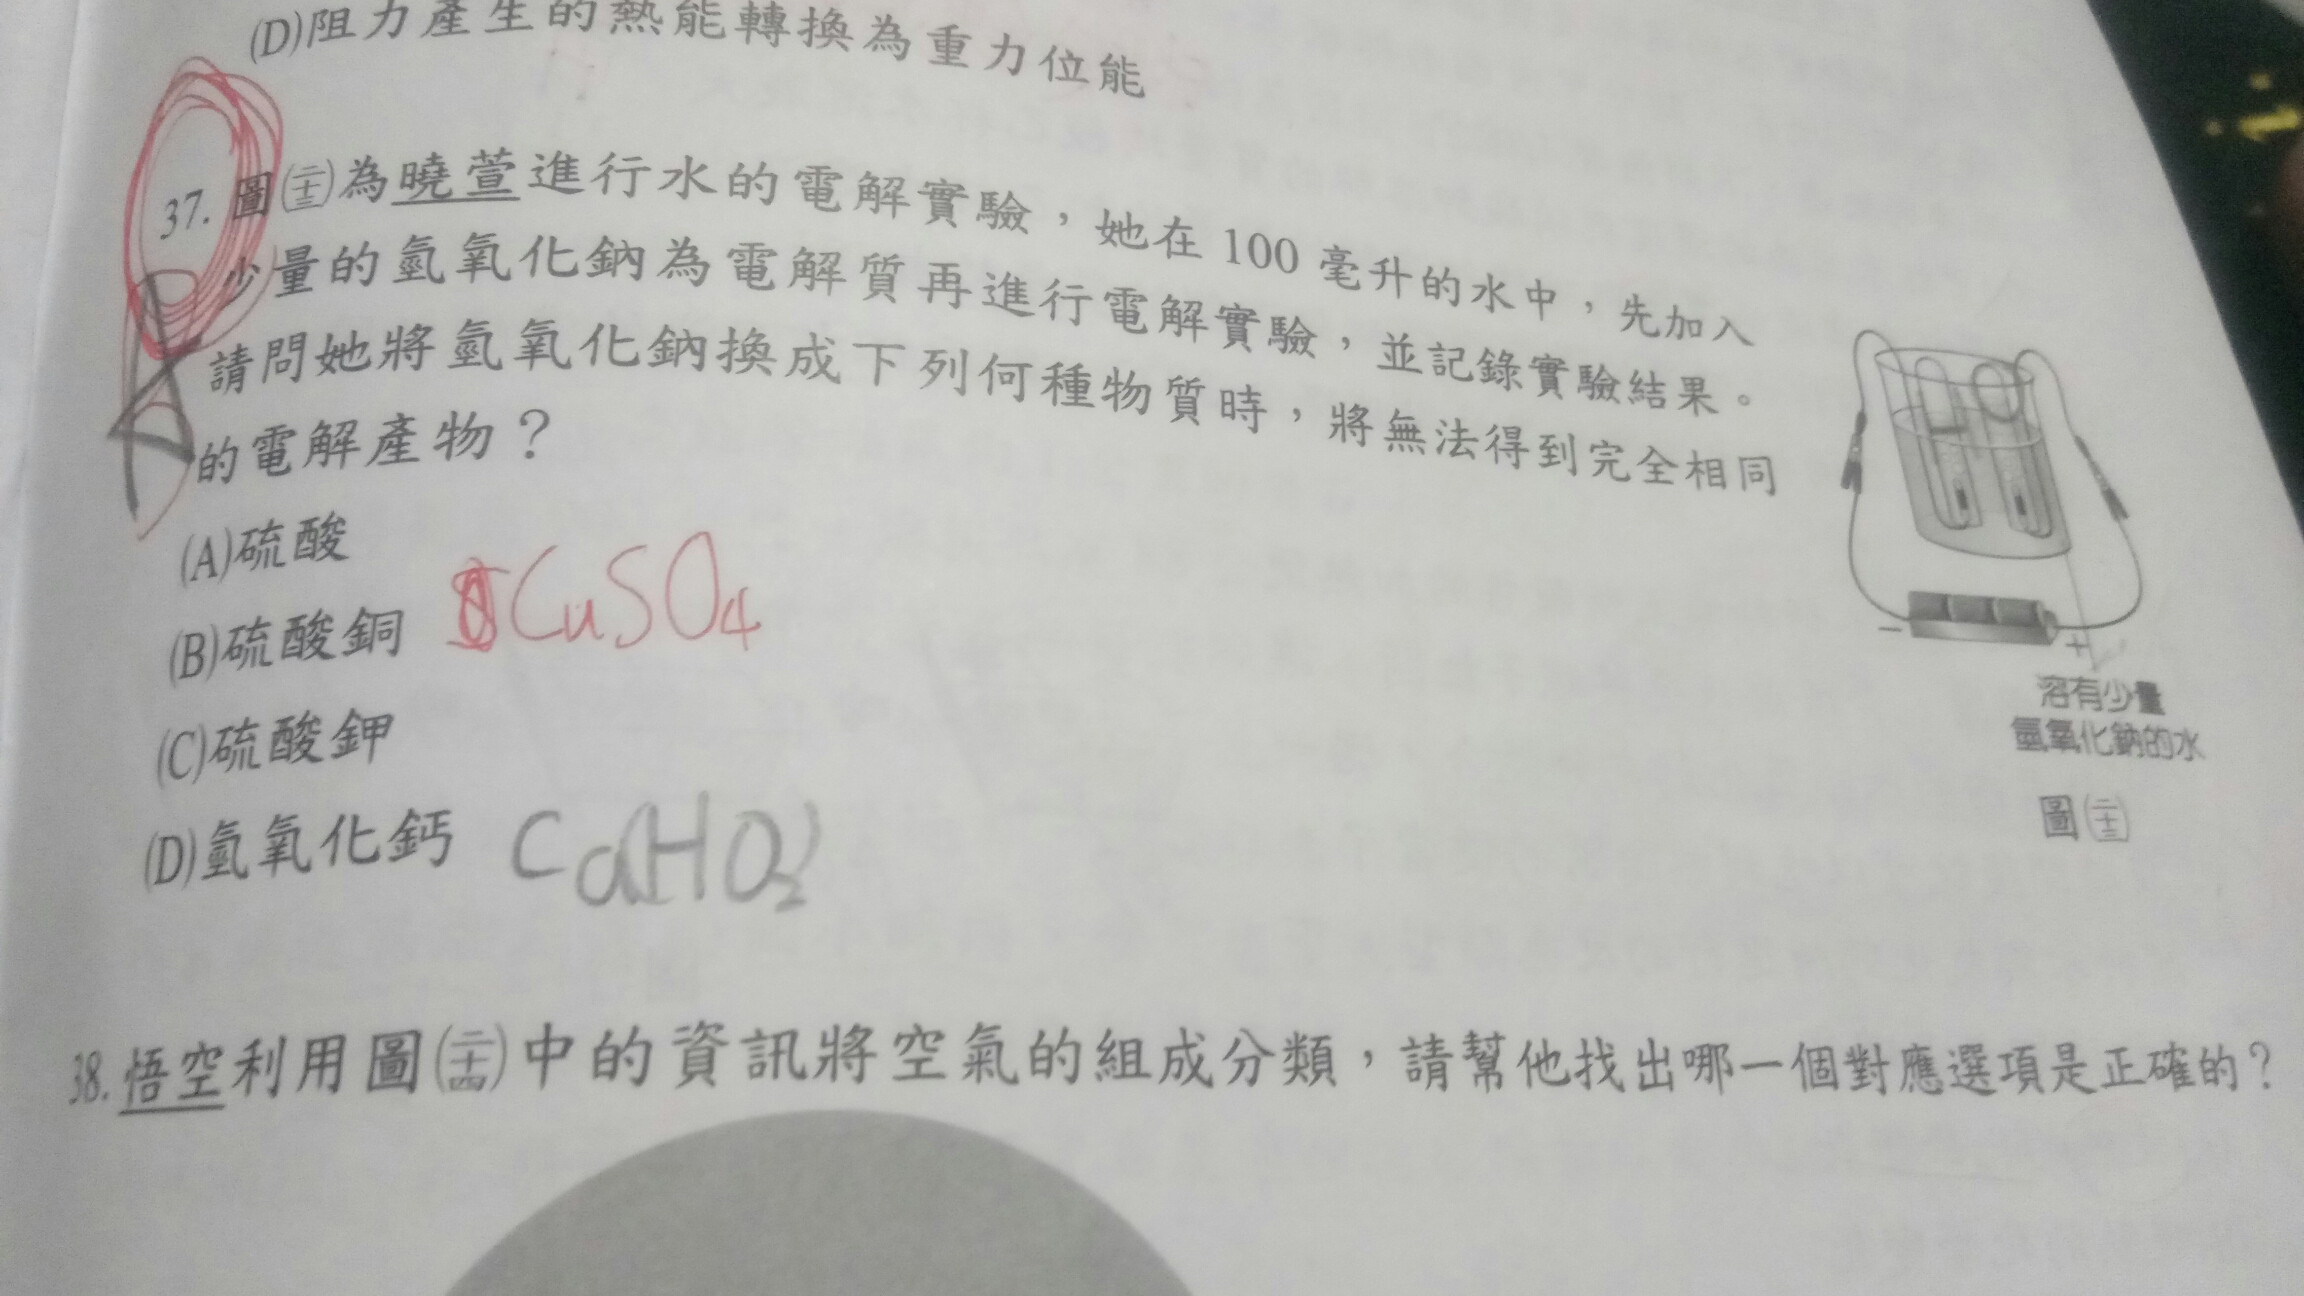 (D)阻力產生的熱能轉換為重力位能
37. 圖(二十三)為曉萱進行水的電解實驗，她在 100 毫升的水中，先加入
少量的氫氧化鈉為電解質再進行電解實驗，並記錄實驗結果。
請問她將氫氧化鈉換成下列何種物質時，將無法得到完全相同
的電解產物？
(A)硫酸
(B)硫酸銅 CuSO4
(C)硫酸鉀
(D)氫氧化鈣 Ca(HO)2
− +
溶有少量
氫氧化鈉的水
圖(二十三)
38. 悟空利用圖(二十四)中的資訊將空氣的組成分類，請幫他找出哪一個對應選項是正確的？